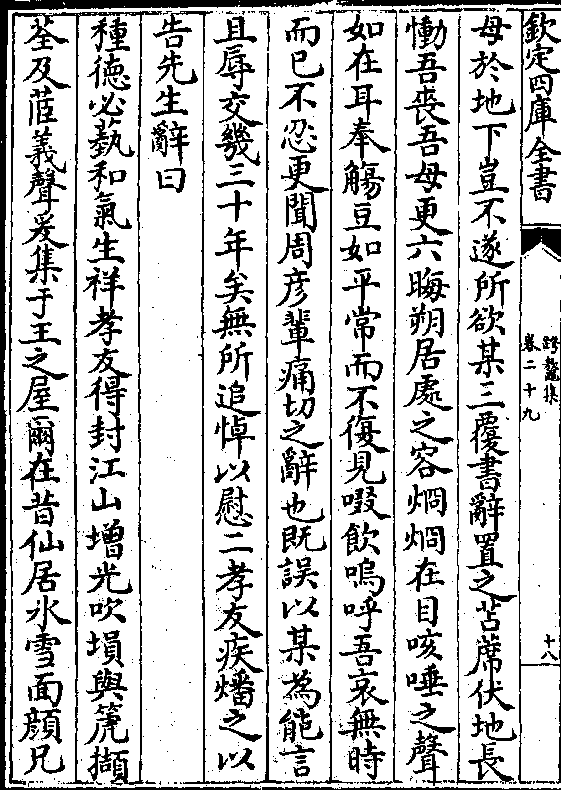 欽定四庫全書
跨鼇集
卷二十九
十八
母於地下豈不遂所欲某三覆書辭置之苫蓆伏地長
慟吾喪吾母更六晦朔居處之容烱烱在目咳唾之聲
如在耳奉觴豆如平常而不復見啜飲嗚呼吾哀無時
而已不忍更聞周彦輩痛切之辭也既誤以某為能言
且辱交幾三十年矣無所追悼以慰二孝友疾燔之以
告先生辭曰
種德必蓺和氣生祥孝友得封江山増光吹塤與箎擷
荃及茝義聲爰集于王之屋爾在昔仙居氷雪面顔兄